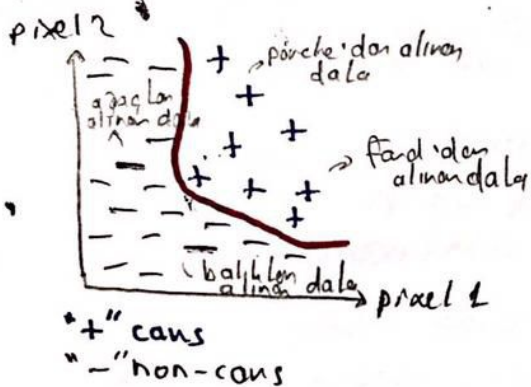 pixel 2
porche'dan alınan
data
ağaçtan
alınan data
ford'dan
alınan data
balıktan data
alınan
pixel 1
"+" cars
"-" non-cars